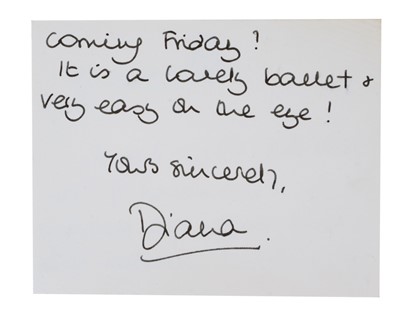 coming Friday?
It is a lovely ballet &
very easy on the eye!
Yours sincerely,
Diana.